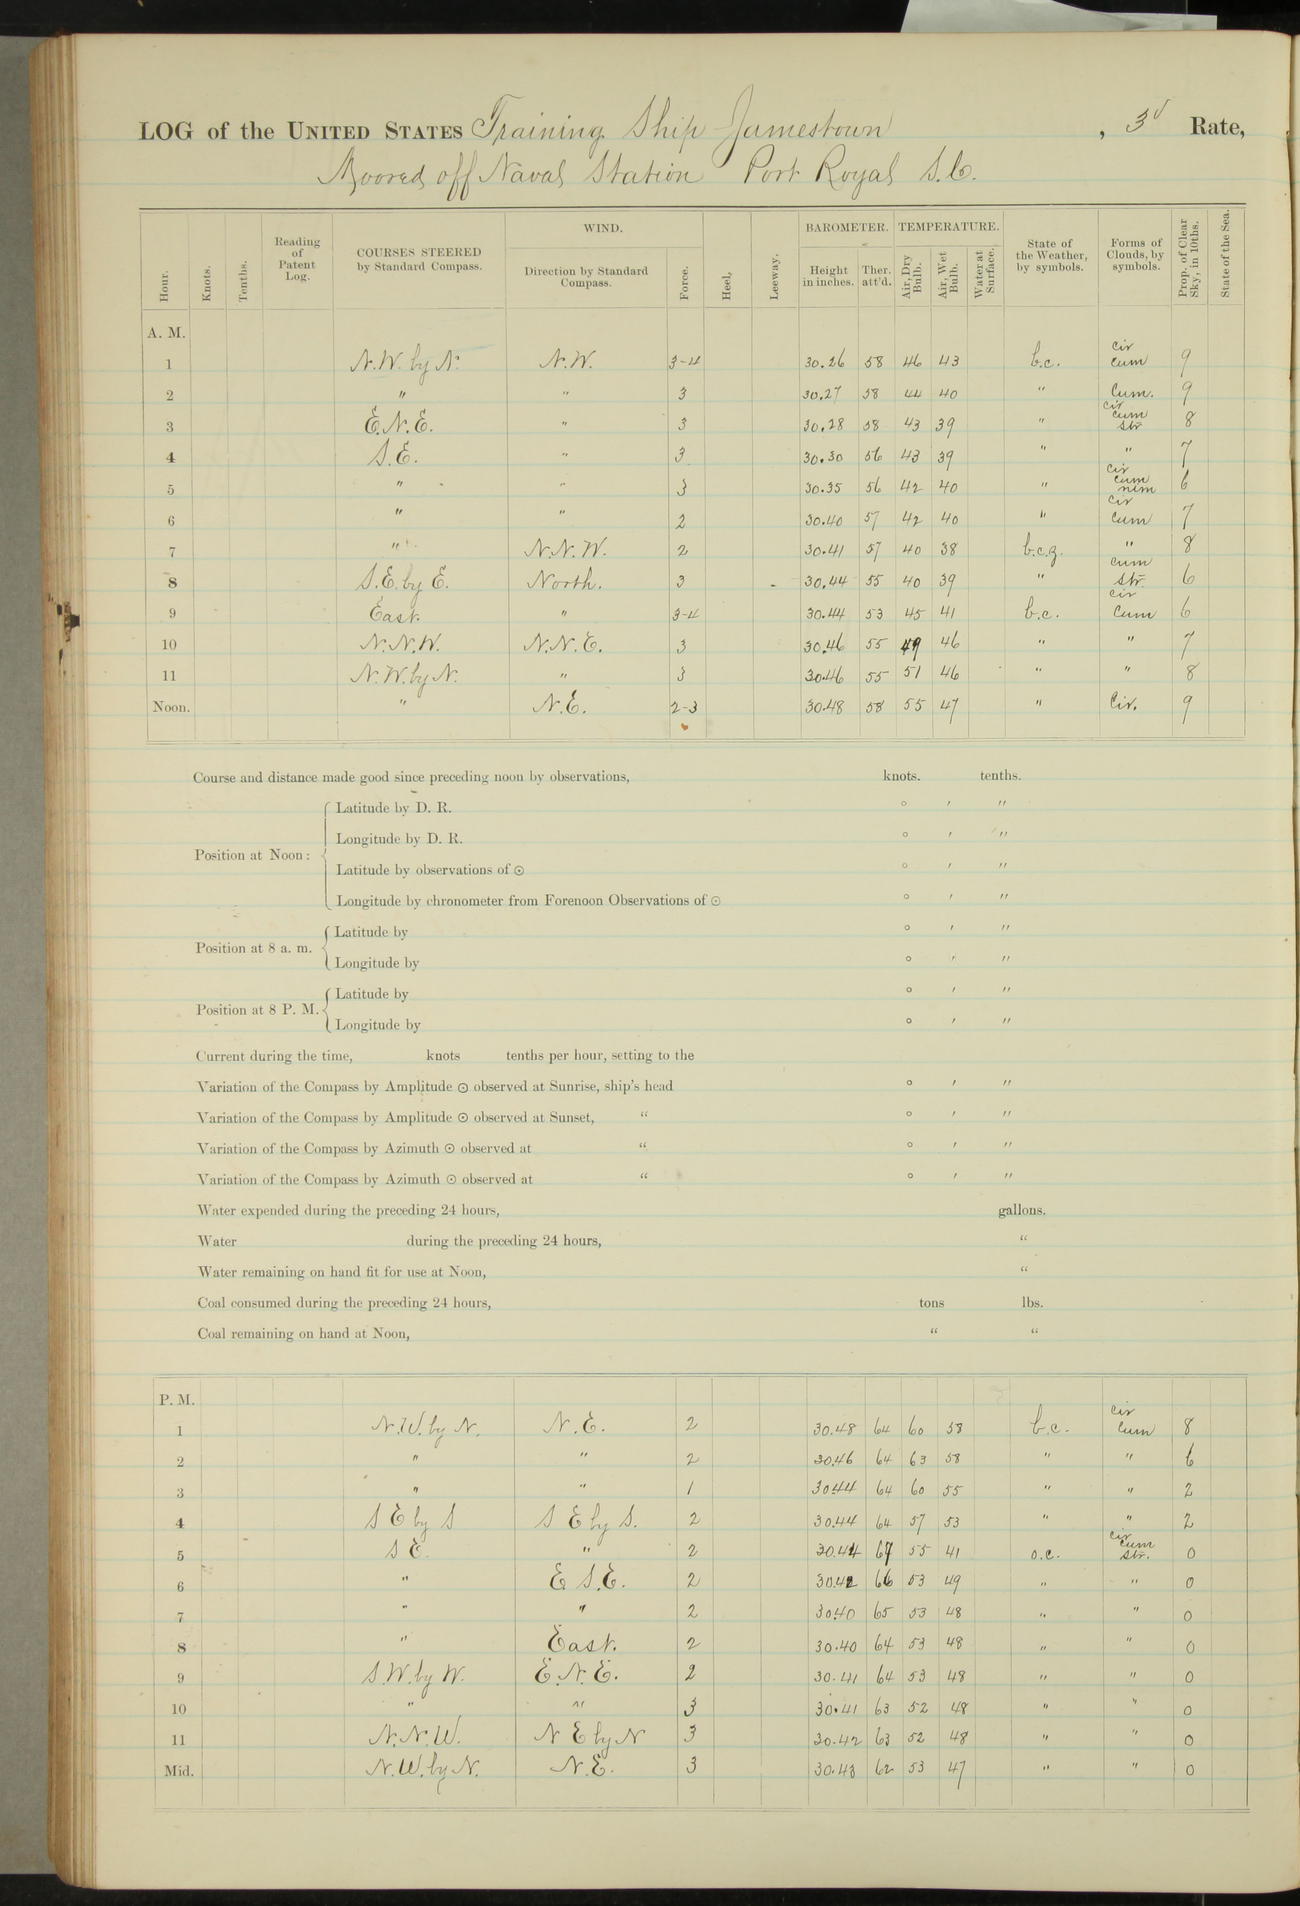 LOG of the UNITED STATES Training Ship Jamestown, 3d Rate,
Moored off Naval Station Port Royal S.C.
Hour. Knots. Tenths. Reading of Patent Log. COURSES STEERED by Standard Compass. WIND. Direction by Standard Compass. Force. Heel, Leeway, BAROMETER. Height in inches. Ther. att'd. TEMPERATURE. Air, Dry Bulb. Air, Wet Bulb. Water at Surface. State of the Weather, by symbols. Forms of Clouds, by symbols. Prop. of Clear Sky, in 10ths. State of the Sea.
A. M.
1 N.W. by N. N.W. 3-4 30.26 58 46 43 b.c. cir cum 9
2 " " 3 30.27 58 44 40 " Cum. 9
3 E.N.E. " 3 30.28 58 43 39 " cir cum str 8
4 S.E. " 3 30.30 56 43 39 " " 7
5 " " 3 30.35 56 42 40 " cir cum nim 6
6 " " 2 30.40 57 42 40 " cir cum 7
7 " N.N.W. 2 30.41 57 40 38 b.c.z. " 8
8 S.E. by E. North. 3 30.44 55 40 39 " cum str. 6
9 East. " 3-4 30.44 53 45 41 b.c. cir cum 6
10 N.N.W. N.N.E. 3 30.46 55 49 46 " " 7
11 N.W. by N. " 3 30.46 55 51 46 " " 8
Noon. " N.E. 2-3 30.48 58 55 47 " Cir. 9
Course and distance made good since preceding noon by observations, knots. tenths.
Position at Noon:
Latitude by D. R. ° ′ ″
Longitude by D. R. ° ′ ″
Latitude by observations of ☉ ° ′ ″
Longitude by chronometer from Forenoon Observations of ☉ ° ′ ″
Position at 8 a. m.
Latitude by ° ′ ″
Longitude by ° ′ ″
Position at 8 P. M.
Latitude by ° ′ ″
Longitude by ° ′ ″
Current during the time, knots tenths per hour, setting to the
Variation of the Compass by Amplitude ☉ observed at Sunrise, ship's head ° ′ ″
Variation of the Compass by Amplitude ☉ observed at Sunset, " ° ′ ″
Variation of the Compass by Azimuth ☉ observed at " ° ′ ″
Variation of the Compass by Azimuth ☉ observed at " ° ′ ″
Water expended during the preceding 24 hours, gallons.
Water during the preceding 24 hours, "
Water remaining on hand fit for use at Noon, "
Coal consumed during the preceding 24 hours, tons lbs.
Coal remaining on hand at Noon, " "
P. M.
1 N.W. by N. N.E. 2 30.48 64 60 58 b.c. cir cum 8
2 " " 2 30.46 64 63 58 " " 6
3 " " 1 30.44 64 60 55 " " 2
4 S E by S S E by S. 2 30.44 64 57 53 " " 2
5 S E. " 2 30.44 67 55 41 o.c. cir cum str. 0
6 " E S.E. 2 30.42 66 53 49 " " 0
7 " " 2 30.40 65 53 48 " " 0
8 " East. 2 30.40 64 53 48 " " 0
9 S.W. by W. E.N.E. 2 30.41 64 53 48 " " 0
10 " " 3 30.41 63 52 48 " " 0
11 N.N.W. N E by N 3 30.42 63 52 48 " " 0
Mid. N.W. by N. N.E. 3 30.43 62 53 47 " " 0